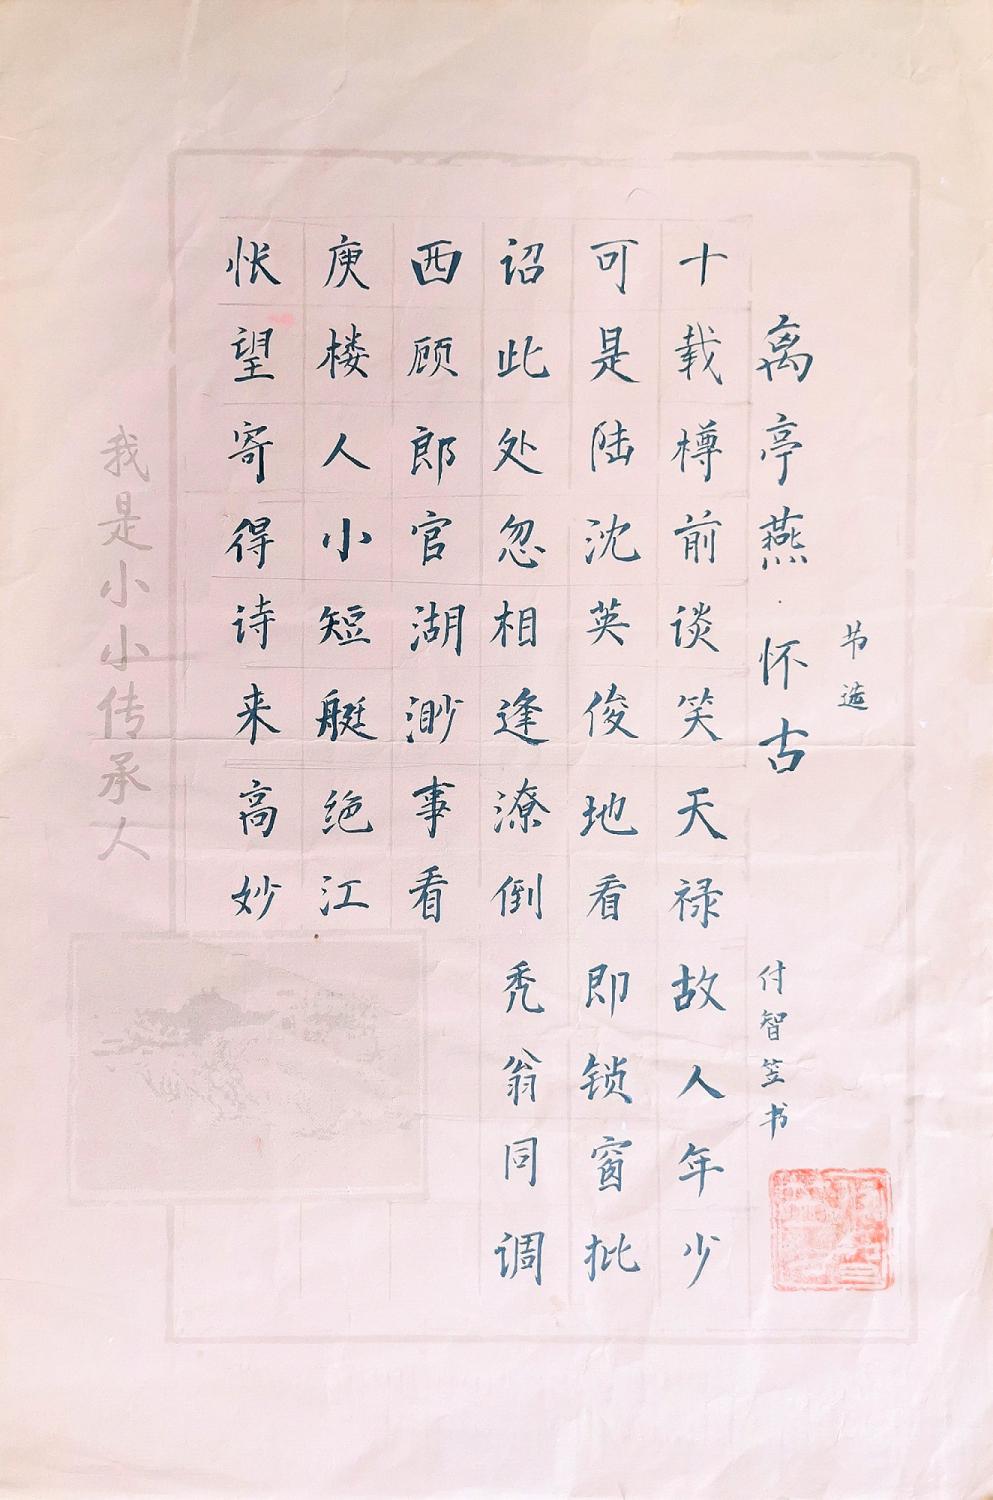 节选
离亭燕·怀古
付智笠书
十载樽前谈笑天禄故人年少
可是陆沈英俊地看即锁窗批
诏此处忽相逢潦倒秃翁同调
西顾郎官湖渺事看
庾楼人小短艇绝江
怅望寄得诗来高妙
我是小小传承人